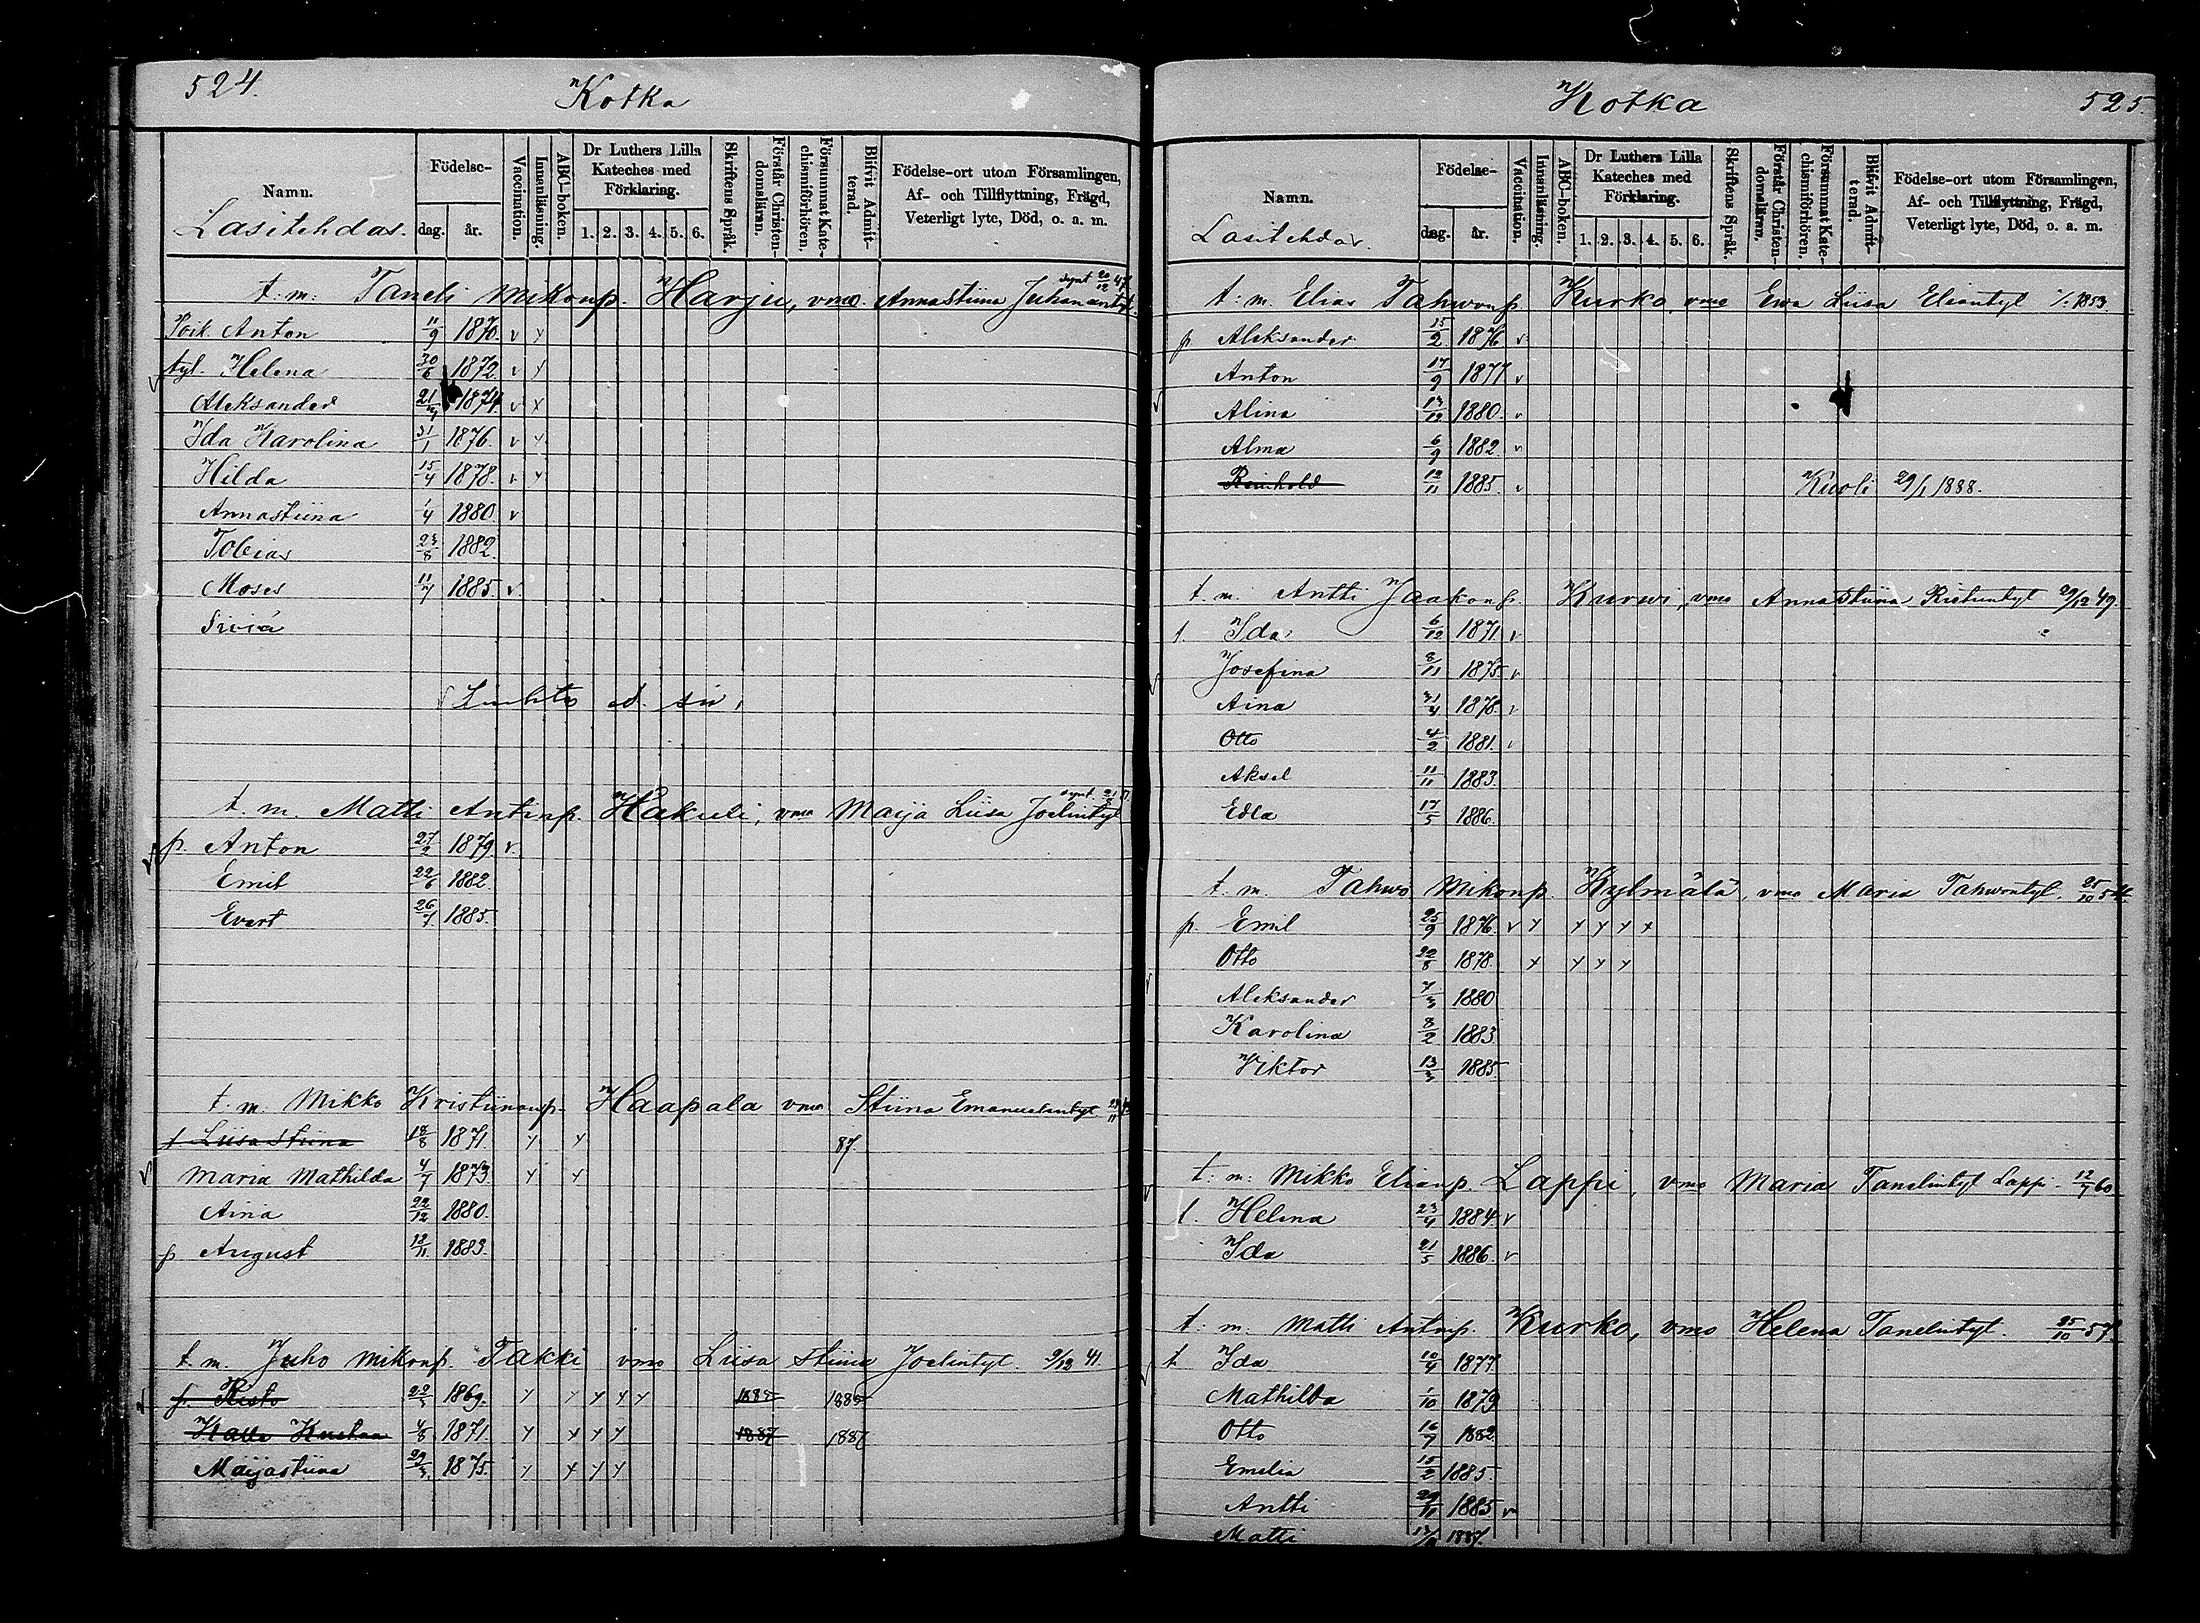 524.
Kotka
Namn.
Lasitehdas.
Födelse-
dag.
år.
Vaccination.
Innanläsning.
ABC-boken.
Dr Luthers Lilla
Kateches med
Förklaring.
1. 2. 3. 4. 5. 6.
Skriftens Språk.
Förstår Christen-
domsläran.
Försummat Kate-
chismiförhören.
Blifvit Admit-
terad.
Födelse-ort utom Församlingen,
Af- och Tillflyttning, Frägd,
Veterligt lyte, Död, o. a. m.
t. m. Taneli Mikonp. Harju, vmo. Annastiina Juhanantyt.
Poik Anton 11/9 1870. v x
tyt. Helena 30/6 1872 v x
Aleksander 1874 v x
Ida Karolina 31/1 1876. v x
Hilda 15/4 1878. v x
Annastiina 1/4 1880. v
Tobias 23/8 1882.
Moses 11/7 1885. v
t. m. Matti Antinp. Hakuli, vmo Maija Liisa Joelintyt
p. Anton 27/2 1879. v.
Emil 22/6 1882.
Evert 26/7 1885.
t. m. Mikko Kristiinanp. Haapala vmo Stiina Emanuelintyt
t Liisa Stiina 18/8 1871. x x 87.
Maria Mathilda 4/7 1873. x x
Aina 22/12 1880.
p August 12/11 1883.
t. m. Juho Mikonp. Takki vmo Liisa Stiina Joelintyt. 9/12 41.
p. Risto 22/3 1869. x x x x x 1885 1885
Kalle Kustaa 4/8 1871. x x x x 1887 1887
Maijastiina 29/3 1875. x x x x
Kotka
525.
Namn.
Lasitehdas.
Födelse-
dag.
år.
Vaccination.
Innanläsning.
ABC-boken.
Dr Luthers Lilla
Kateches med
Förklaring.
1. 2. 3. 4. 5. 6.
Skriftens Språk.
Förstår Christen-
domsläran.
Försummat Kate-
chismiförhören.
Blifvit Admit-
terad.
Födelse-ort utom Församlingen,
Af- och Tillflyttning, Frägd,
Veterligt lyte, Död, o. a. m.
t. m. Elias Tahwonp. Kurko, vmo Ewa Liisa Eliantyt 1853.
p Aleksander 15/2 1876 v
Anton 17/9 1877 v
Alina 13/12 1880. v
Alma 6/9 1882. v
Reinhold 12/11 1885. v Kuoli 29/1 1888.
t. m. Antti Jaakonp. Kurwi, vmo Annastiina Ristintyt 29/12 49.
t. Ida 6/12 1871 v
Josefina 8/11 1875. v
Aina 1878. v
Otto 4/2 1881. v
Aksel 11/11 1883.
Edla 17/5 1886.
t. m. Tahwo Mikonp. Kylmälä, vmo Maria Tahwontyt. 25/10 54
p. Emil 25/9 1876. v x x x x x
Otto 22/8 1878. x x x x
Aleksander 7/3 1880
Karolina 8/2 1883
Viktor 13/3 1885.
t. m. Mikko Elianp. Lappi, vmo Maria Tanelintyt Lappi. 12/7 60
t. Helena 23/4 1884 v
Ida 21/5 1886. v
t. m. Matti Antinp. Kurko, vmo Helena Tanelintyt. 25/10 57.
t. Ida 10/4 1877.
Mathilda 1/10 1879
Otto 16/7 1882
Emelia 15/2 1885.
Antti 29/11 1885 v
Matti 1887.